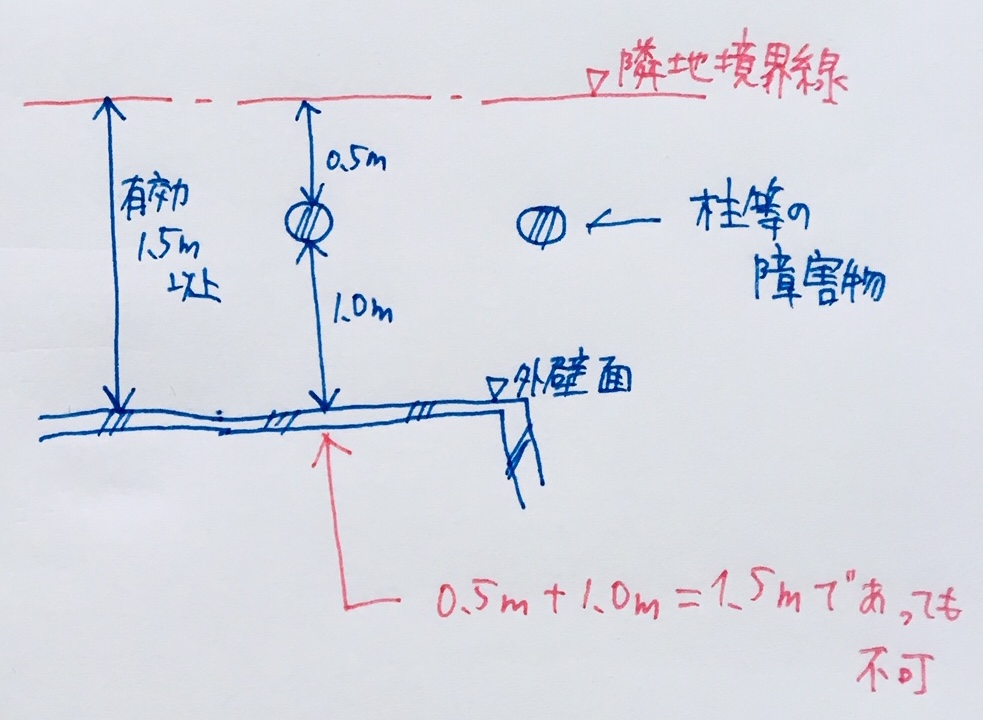 隣地境界線
0.5m
有効
1.5m
以上
柱等の
障害物
1.0m
外壁面
0.5m+1.0m=1.5mであっても
不可